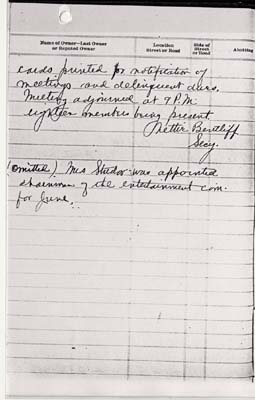 Name of Owner—Last Owner or Reputed Owner
Location Street or Road
Side of Street or Road
Abutting
cards printed for notification of
meetings and delinquent dues.
Meeting adjourned at 7 P.M.
eighteen members being present
Nettie Bentliff
Secy.
(Omitted) Mrs was appointed
chairman of the entertainment com.
for June.